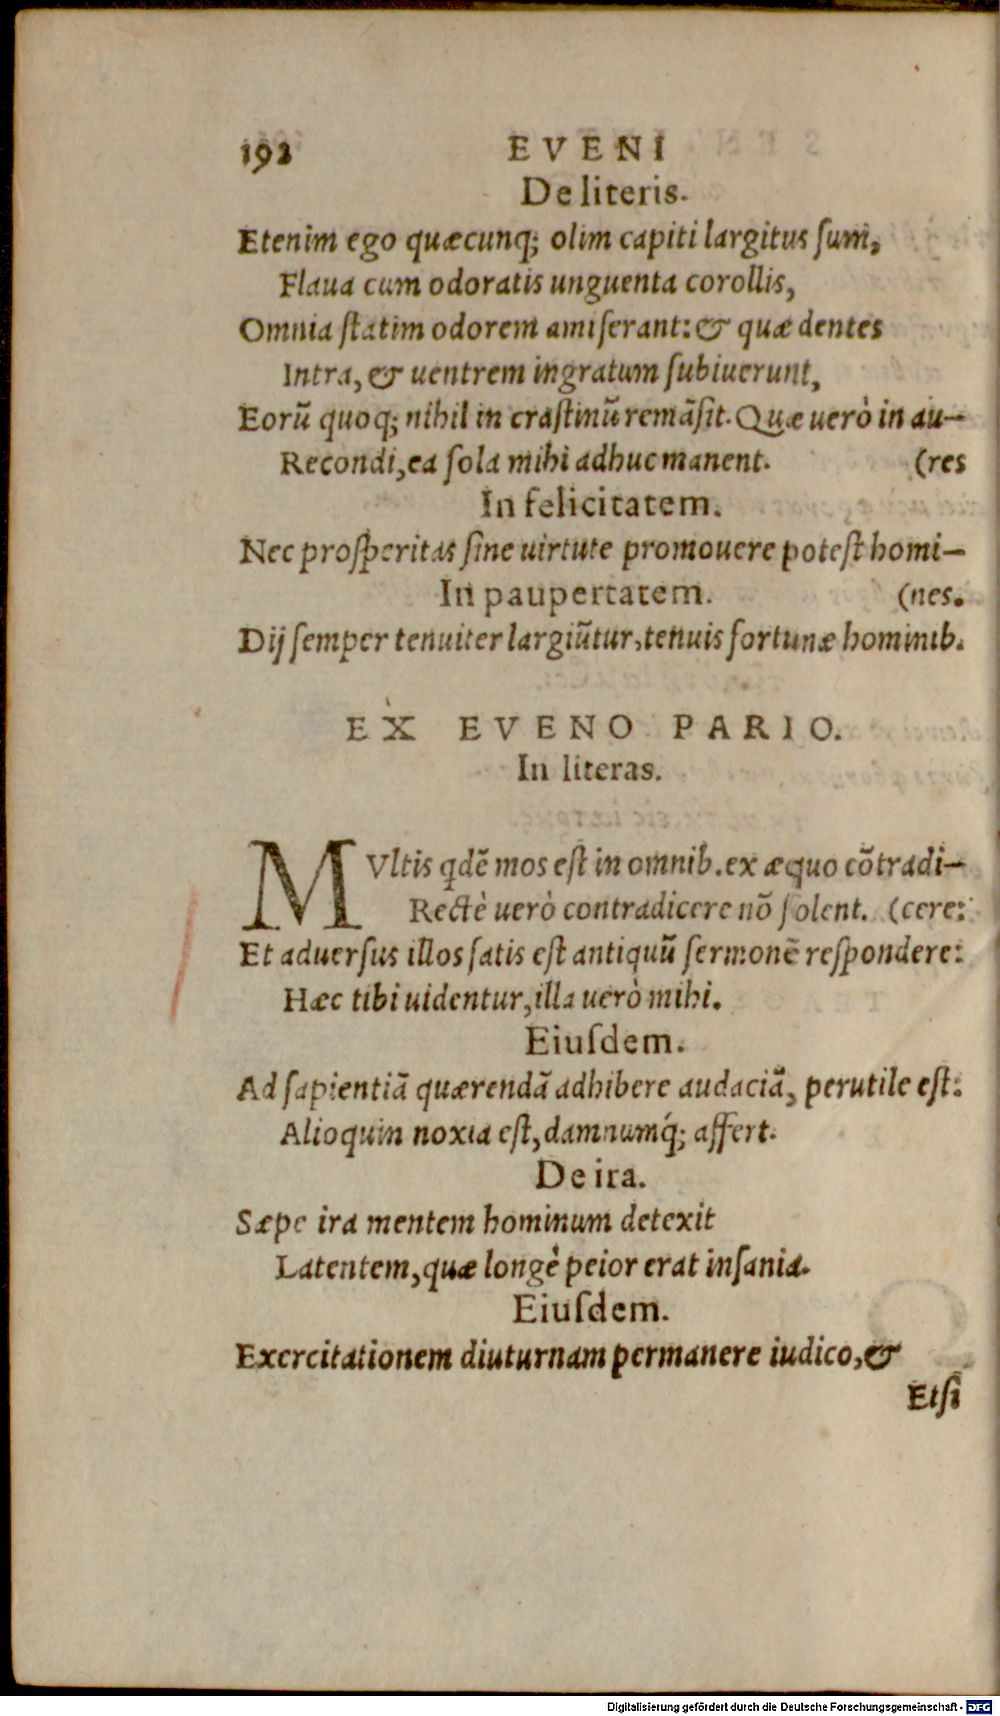 192 EVENI
De literis.
Etenim ego quæcunq; olim capiti largitus ſum,
Flaua cum odoratis unguenta corollis,
Omnia ſtatim odorem amiſerant: & quæ dentes
Intra, & uentrem ingratum ſubiuerunt,
Eorū quoq; nihil in craſtinū remāſit. Quæ uerò in au-
Recondi, ea ſola mihi adhuc manent. (res
In felicitatem.
Nec proſperitas ſine uirtute promouere poteſt homi-
In paupertatem. (nes.
Dij ſemper tenuiter largiūtur, tenuis fortunæ hominib.
EX EVENO PARIO.
In literas.
MVltis qdē mos eſt in omnib. ex æquo cōtradi-
Rectè uerò contradicere nō ſolent. (cere:
Et aduerſus illos ſatis eſt antiquū ſermonē reſpondere:
Hæc tibi uidentur, illa uerò mihi.
Eiuſdem.
Ad ſapientiā quærendā adhibere audaciā, perutile eſt:
Alioquin noxia eſt, damnumq́; affert.
De ira.
Sæpe ira mentem hominum detexit
Latentem, quæ longè peior erat inſania.
Eiuſdem.
Exercitationem diuturnam permanere iudico, &
Etſi
Digitalisierung gefördert durch die Deutsche Forschungsgemeinschaft - DFG